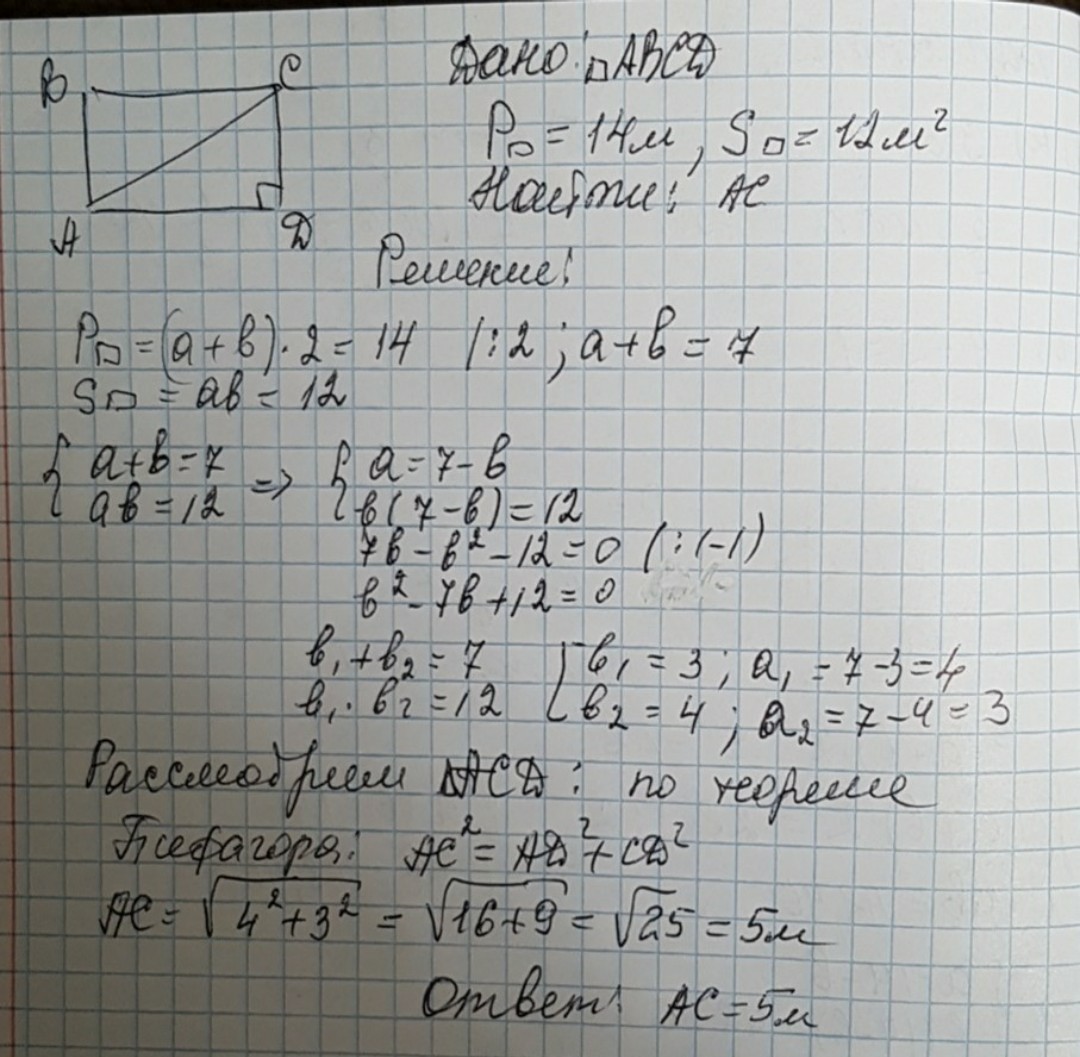 B C
A D
Дано: □ABCD
P□ = 14м, S□ = 12м²
Найти: AC
Решение:
P□ = (a+b)·2 = 14 |:2; a+b = 7
S□ = ab = 12
{ a+b=7 => { a=7-b
ab=12 b(7-b)=12
7b-b²-12=0 (:(-1)
b²-7b+12=0
b₁+b₂=7 [ b₁=3; a₁=7-3=4
b₁·b₂=12 b₂=4; a₂=7-4=3
Рассмотрим △ACD: по теореме
Пифагора: AC²=AD²+CD²
AC=√4²+3² = √16+9 = √25 = 5м
Ответ: AC=5м